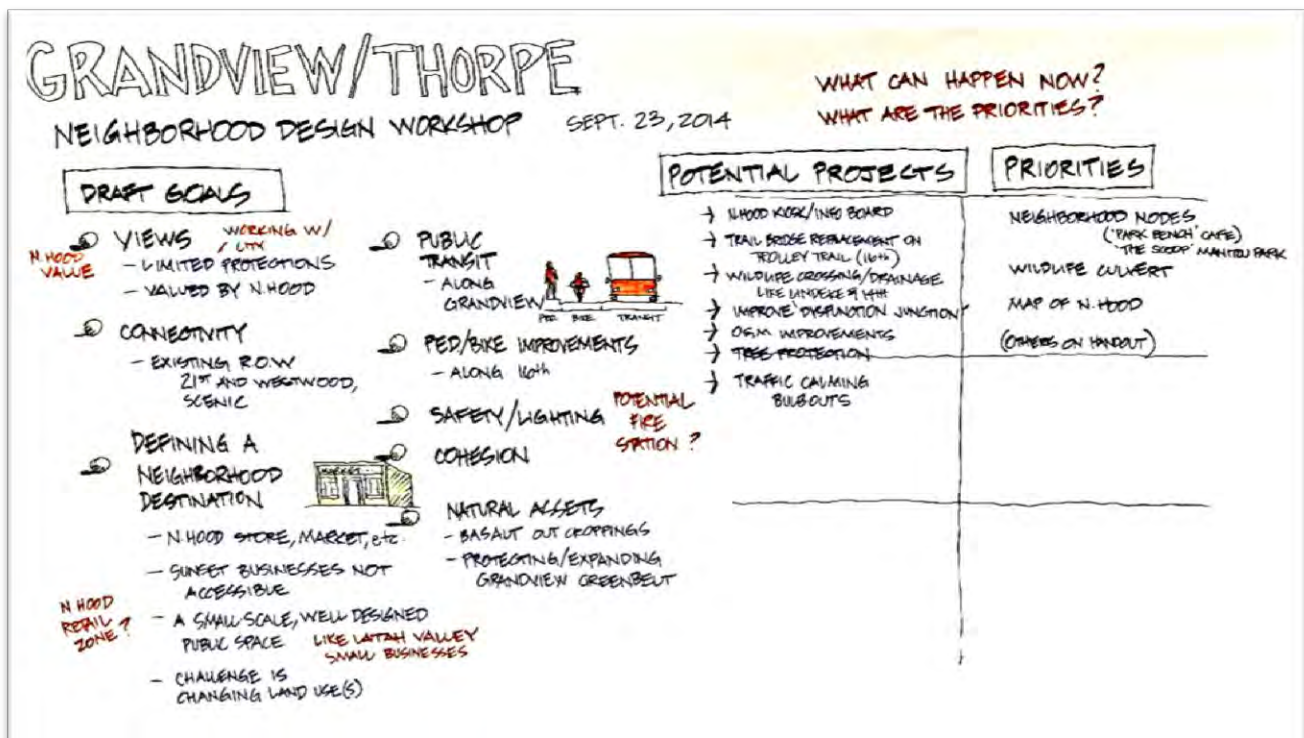 GRANDVIEW/THORPE
NEIGHBORHOOD DESIGN WORKSHOP SEPT. 23, 2014
WHAT CAN HAPPEN NOW?
WHAT ARE THE PRIORITIES?
DRAFT GOALS
N.HOOD
VALUE
VIEWS
WORKING W/
CITY
- LIMITED PROTECTIONS
- VALUED BY N.HOOD
CONNECTIVITY
- EXISTING R.O.W
21ST AND WESTWOOD,
SCENIC
DEFINING A
NEIGHBORHOOD
DESTINATION
MARKET
- N.HOOD STORE, MARKET, etc.
- SUNSET BUSINESSES NOT
ACCESSIBLE
N HOOD
RETAIL
ZONE?
- A SMALL SCALE, WELL DESIGNED
PUBLIC SPACE
LIKE LATAH VALLEY
SMALL BUSINESSES
- CHALLENGE IS
CHANGING LAND USE(S)
PUBLIC
TRANSIT
- ALONG
GRANDVIEW
PED BIKE TRANSIT
PED/BIKE IMPROVEMENTS
- ALONG 16th
SAFETY/LIGHTING
POTENTIAL
FIRE
STATION ?
COHESION
NATURAL ASSETS
- BASALT OUT CROPPINGS
- PROTECTING/EXPANDING
GRANDVIEW GREENBELT
POTENTIAL PROJECTS
→ N.HOOD KIOSK/INFO BOARD
→ TRAIL BRIDGE REPLACEMENT ON
TROLLEY TRAIL (16th)
→ WILDLIFE CROSSING/DRAINAGE
LIKE LINDEKE & 14th
→ IMPROVE 'DYSFUNCTION JUNCTION'
→ IMPROVEMENTS
→ TREE PROTECTION
→ TRAFFIC CALMING
BULBOUTS
PRIORITIES
NEIGHBORHOOD NODES
('PARK BENCH' CAFE)
'THE SCOOP' MANITOU PARK
WILDLIFE CULVERT
MAP OF N.HOOD
(OTHERS ON HANDOUT)